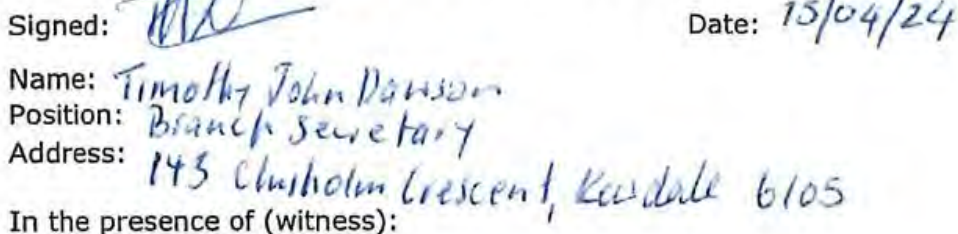 Signed: Date: 15/04/24
Name: Timothy John Dawson
Position: Branch Secretary
Address: 143 Chisholm Crescent, Kewdale 6105
In the presence of (witness):